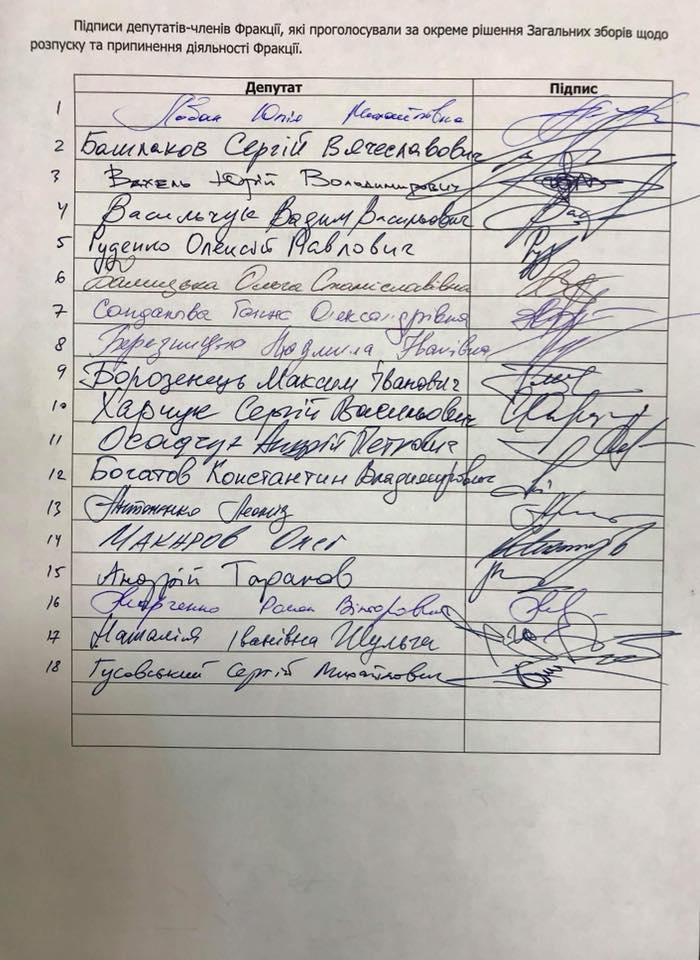 Підписи депутатів-членів Фракції, які проголосували за окреме рішення Загальних зборів щодо
розпуску та припинення діяльності Фракції.
Депутат Підпис
1 Лобан Юлія Михайлівна
2 Башлаков Сергій Вячеславович
3 Вахель Юрій Володимирович
4 Васильчук Вадим Васильович
5 Руденко Олексій Павлович
6 Балицька Ольга Станіславівна
7 Сандалова Ганна Олександрівна
8 Березницька Людмила Іванівна
9 Борозенець Максим Іванович
10 Харчук Сергій Васильович
11 Осадчук Андрій Петрович
12 Богатов Константин Владимирович
13 Антоненко Леонід
14 Макаров Олег
15 Андрій Таранов
16 Марченко Роман Вікторович
17 Наталія Іванівна Шульга
18 Гусовський Сергій Михайлович